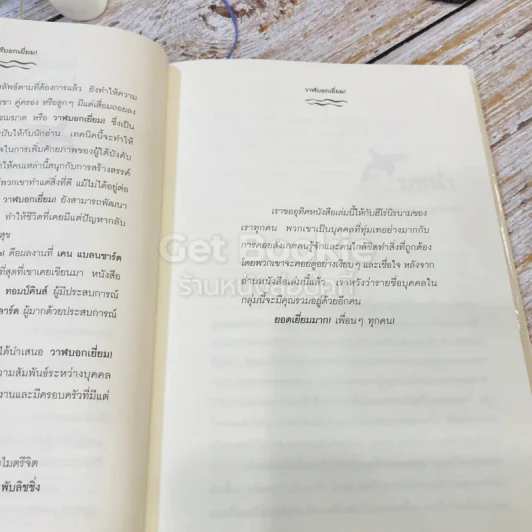 วาฬบอกเยี่ยม!
ลัพธ์ตามที่ต้องการแล้ว ยังทำให้ความ
ขา คู่ครอง หรือลูกๆ มีแต่เสื่อมถอยลง
หรือ วาฬบอกเยี่ยม! ซึ่งเป็น
ให้กับนักอ่าน เทคนิคนี้จะทำให้
ในการเพิ่มศักยภาพของผู้ใต้บังคับ
ให้คนเหล่านี้สนุกกับการสร้างสรรค์
พวกเขาทำแต่สิ่งที่ดี แม้ไม่ได้อยู่ต่อ
วาฬบอกเยี่ยม! ยังสามารถพัฒนา
ทำให้ชีวิตที่เคยมีแต่ปัญหากลับ
สุข
คือผลงานที่ เคน แบลนชาร์ด
ที่สุดที่เขาเคยเขียนมา หนังสือ
ทอมป์คินส์ ผู้มีประสบการณ์
ลาร์ด ผู้มากด้วยประสบการณ์
ได้นำเสนอ วาฬบอกเยี่ยม!
ความสัมพันธ์ระหว่างบุคคล
งานและมีครอบครัวที่มีแต่
ไมตรีจิต
พับลิชชิ่ง
วาฬบอกเยี่ยม!
บทนำ
เราขออุทิศหนังสือเล่มนี้ให้กับฮีโร่นิรนามของ
เราทุกคน พวกเขาเป็นบุคคลที่ทุ่มเทอย่างมากกับ
การคอยสังเกตคนรู้จักและคนใกล้ชิดทำสิ่งที่ถูกต้อง
โดยพวกเขาจะคอยดูอย่างเงียบๆ และเชื่อใจ หลังจาก
อ่านหนังสือเล่มนี้แล้ว เราหวังว่ารายชื่อบุคคลใน
กลุ่มนี้จะมีคุณรวมอยู่ด้วยอีกคน
ยอดเยี่ยมมาก! เพื่อนๆ ทุกคน!
Get Bookie
ร้านหนังสือบุ๊คกี้